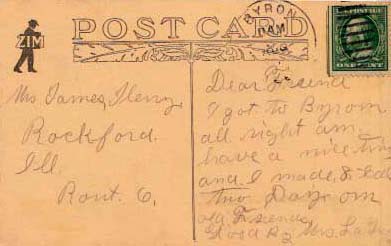 ZIM
POST CARD
BYRON
AM
ONE CENT
Mrs James Henry
Rockford.
Ill
Rout. 6,
Dear Friend
I got to Byron
all right am
have a nice time
and I made &
two Days on
old Friends
Good By Mrs.